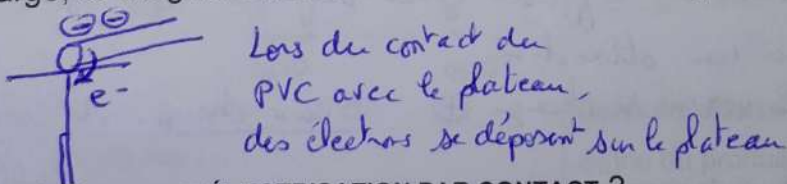 e-
Lors du contact du
PVC avec le plateau,
des électrons se déposent sur le plateau
PAR CONTACT ?